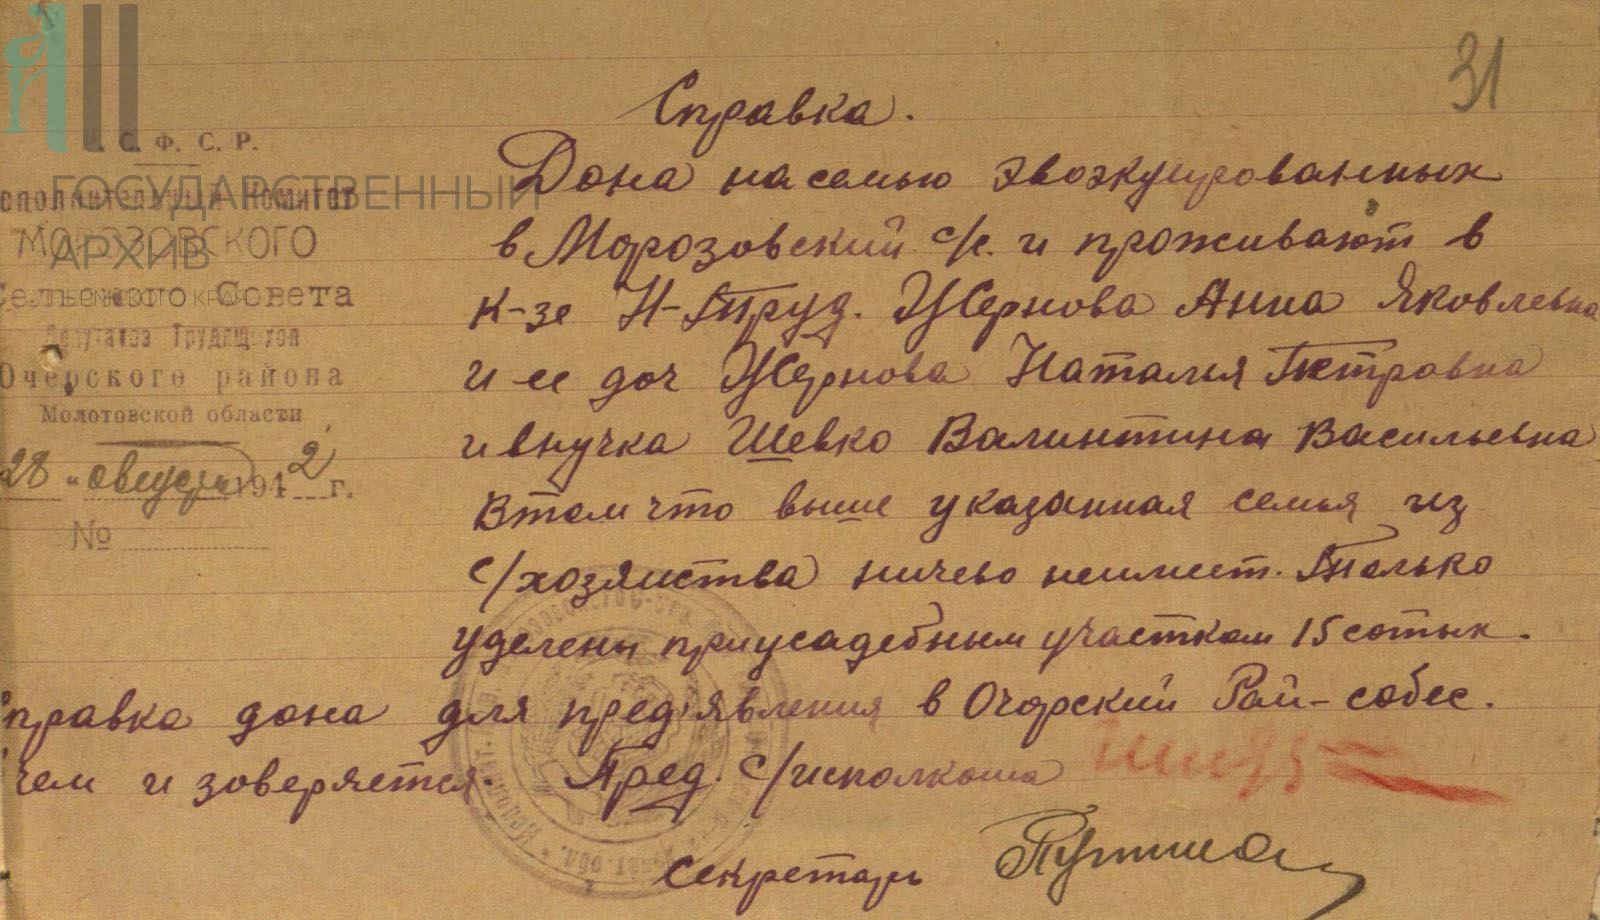 31
Справка.
С. Ф. С. Р.
сполнительный Комитет
МОРОЗОВСКОГО
Сельского Совета
Депутатов Трудящихся
Очерского района
Молотовской области
28 " август 1942 г.
№
ГОСУДАРСТВЕННЫЙ
АРХИВ
ПЕРМСКОГО КРАЯ
Дона на семью эвоэкуированных
в Морозовский с/с. и проживают в
к-зе Н-Труд. Жернова Анна Яковлевна
и ее доч Жернова Наталья Петровна
и внучка Шевко Валинтина Васильевна
В том что выше указанная семья из
с/хозяиства ничево неимеит. Только
уделены приусадебным участком 15 сотык.
правка дона для пред'явления в Очорский Рай-собес.
чем и зоверяется. Пред. с/исполкома
Секретарь